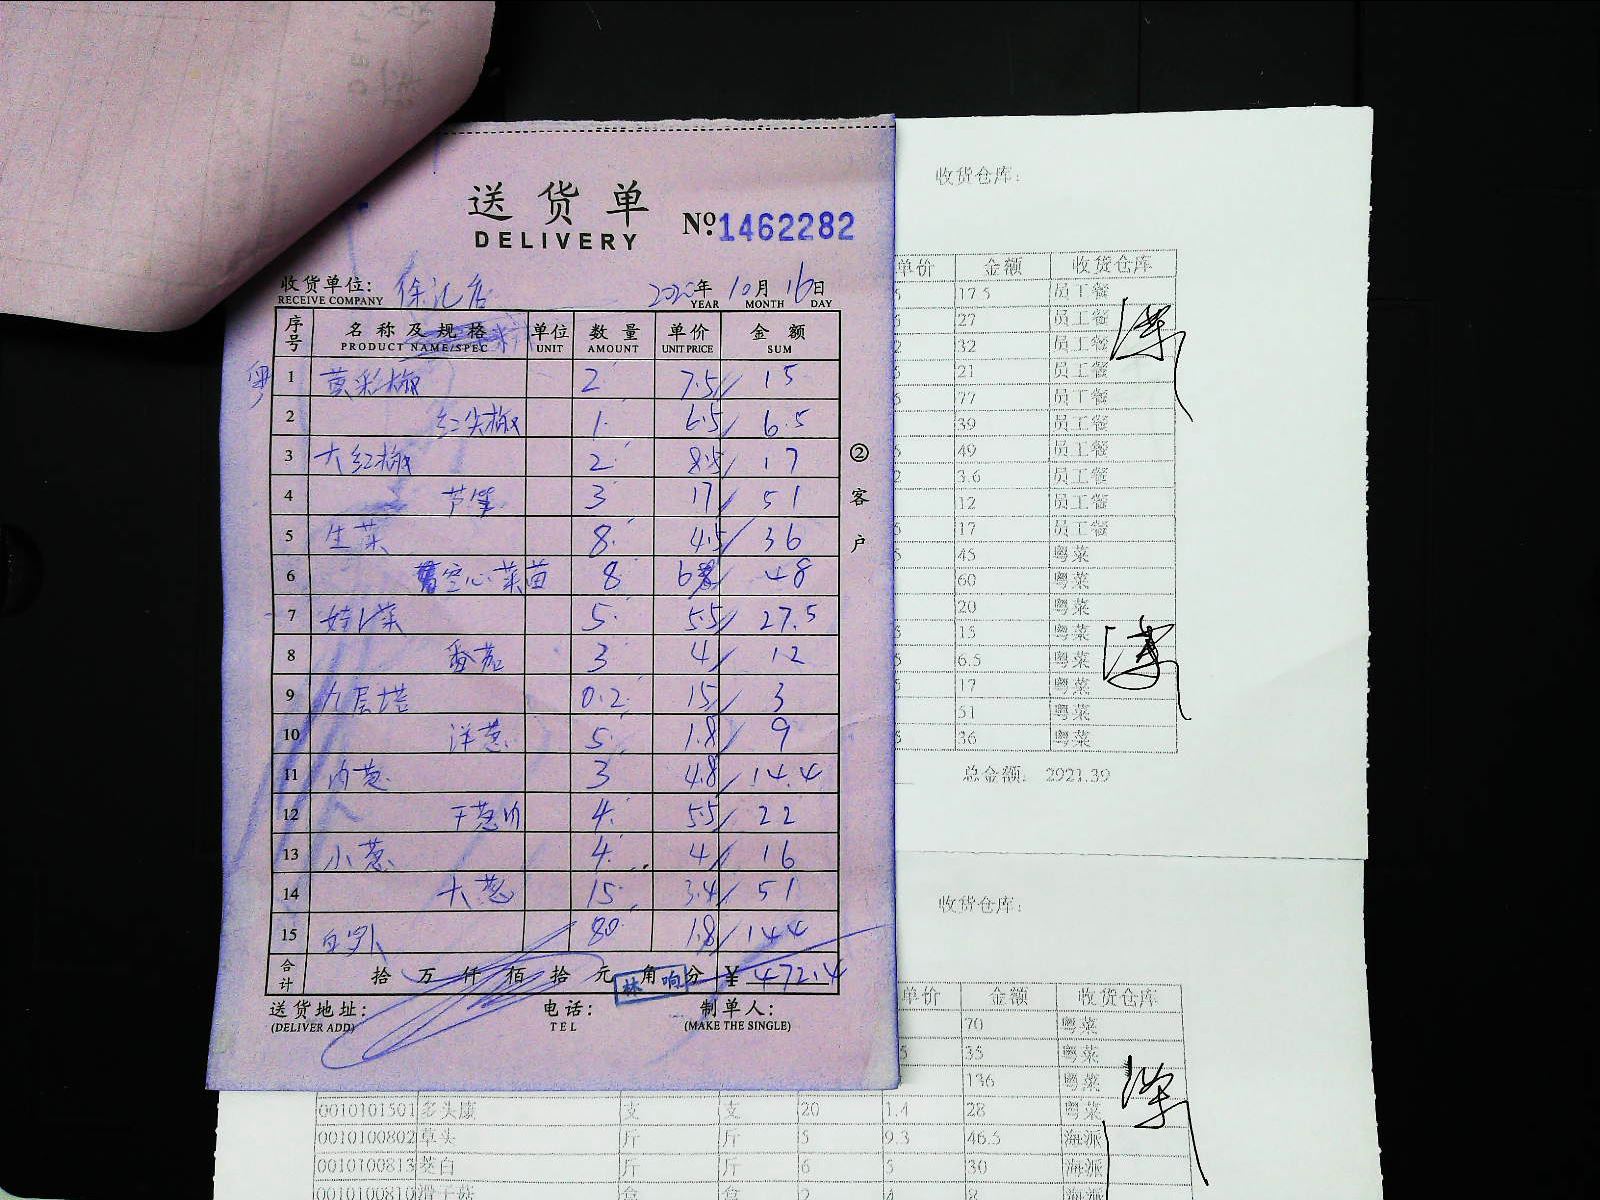 送货单
DELIVERY
№1462282
收货单位: 徐汇店 2020年 10月 16日
RECEIVE COMPANY YEAR MONTH DAY
序号 名称及规格 单位 数量 单价 金额
PRODUCT NAME/SPEC UNIT AMOUNT UNIT PRICE SUM
粤
1 黄彩椒 2 7.5 15
2 红尖椒 1 6.5 6.5
3 大红椒 2 8.5 17
4 芦笋 3 17 51
5 生菜 8 4.5 36
6 空心菜苗 8 6 48
7 娃娃菜 5 5.5 27.5
8 番茄 3 4 12
9 九层塔 0.2 15 3
10 洋葱 5 1.8 9
11 内葱 3 4.8 14.4
12 干葱 4 5.5 22
13 小葱 4 4 16
14 大葱 15 3.4 51
15 白萝卜 80 1.8 144
合计 拾 万 仟 佰 拾 元 角 分 ¥ 472.4
林响
送货地址: 电话: 制单人:
(DELIVER ADD) TEL (MAKE THE SINGLE)
②客户
收货仓库:
单价 金额 收货仓库
17.5 员工餐
27 员工餐
32 员工餐
21 员工餐
77 员工餐
39 员工餐
49 员工餐
3.6 员工餐
12 员工餐
17 员工餐
45 粤菜
60 粤菜
20 粤菜
15 粤菜
6.5 粤菜
17 粤菜
51 粤菜
36 粤菜
总金额: 2921.39
收货仓库:
单价 金额 收货仓库
70 粤菜
35 粤菜
136 粤菜
0010101501 多头康 支 支 20 1.4 28 粤菜
0010100802 草头 斤 斤 5 9.3 46.5 海派
0010100813 茭白 斤 斤 6 5 30 海派
0010100810 滑子菇 盒 盒 2 4 8 海派